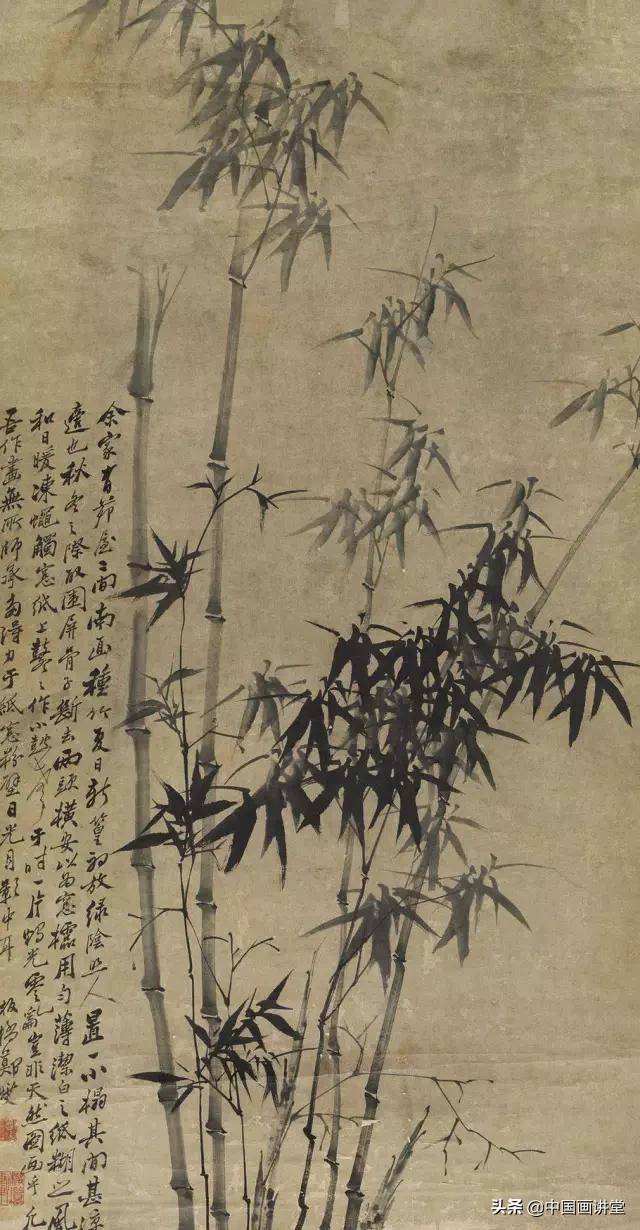 余家有茆屋二間南面種竹夏日新篁初放綠陰照人置一小榻其間甚涼
適也秋冬之際取圍屏骨子斷去兩頭橫安以為窓櫺用勻薄潔白之紙糊之風
和日暖凍蠅觸窓紙上鼕々作小鼓聲于時一片竹影零亂豈非天然圖畫乎凡
吾作畫無所師承多得力于紙窓粉壁日光月影中耳 板橋鄭燮
头条 @中国画讲堂